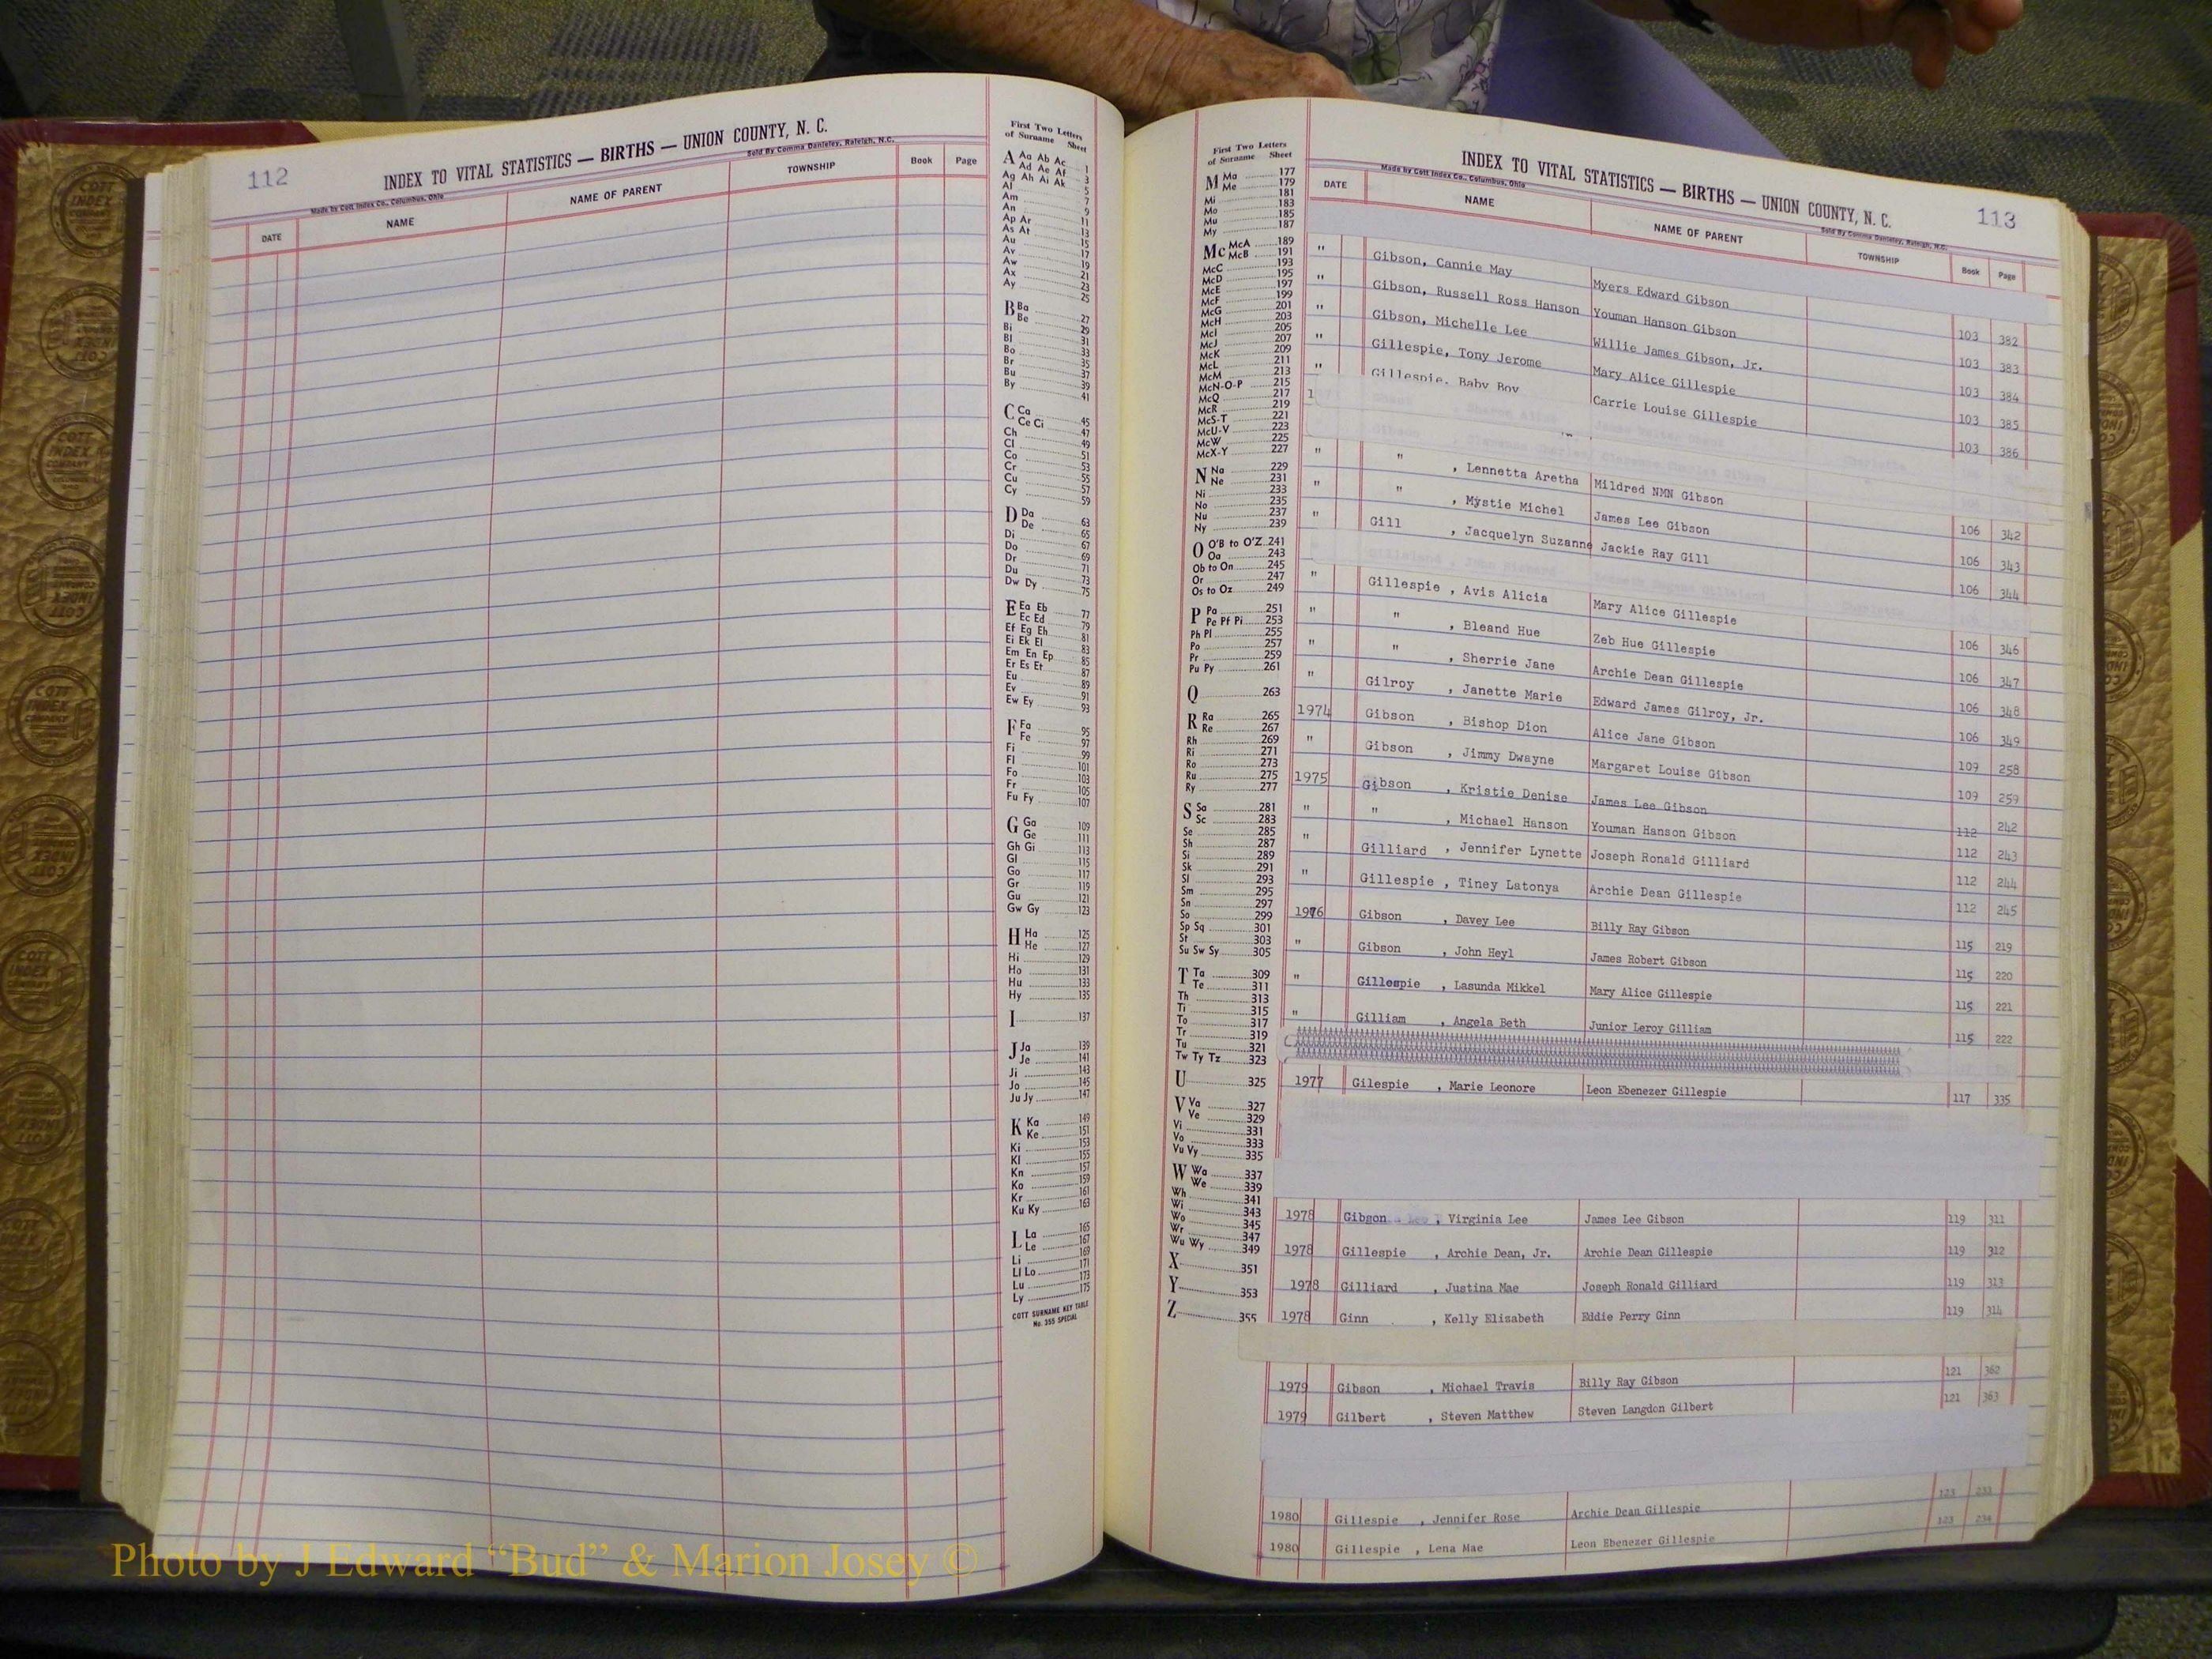 112
INDEX TO VITAL STATISTICS — BIRTHS — UNION COUNTY, N. C.
Made by Cott Index Co., Columbus, Ohio
Sold By Comma Danieley, Raleigh, N.C.
DATE NAME NAME OF PARENT TOWNSHIP Book Page
First Two Letters
of Surname Sheet
A Aa Ab Ac 1
Ad Ae Af 3
Ag Ah Ai Ak 5
Al 7
Am 9
An 11
Ap Ar 13
As At 15
Au 17
Av 19
Aw 21
Ax 23
Ay 25
B Ba 27
Be 29
Bi 31
Bl 33
Bo 35
Br 37
Bu 39
By 41
C Ca 45
Ce Ci 47
Ch 49
Cl 51
Co 53
Cr 55
Cu 57
Cy 59
D Da 63
De 65
Di 67
Do 69
Dr 71
Du 73
Dw Dy 75
E Ea Eb 77
Ec Ed 79
Ef Eg Eh 81
Ei Ek El 83
Em En Ep 85
Er Es Et 87
Eu 89
Ev 91
Ew Ey 93
F Fa 95
Fe 97
Fi 99
Fl 101
Fo 103
Fr 105
Fu Fy 107
G Ga 109
Ge 111
Gh Gi 113
Gl 115
Go 117
Gr 119
Gu 121
Gw Gy 123
H Ha 125
He 127
Hi 129
Ho 131
Hu 133
Hy 135
I 137
J Ja 139
Je 141
Ji 143
Jo 145
Ju Jy 147
K Ka 149
Ke 151
Ki 153
Kl 155
Kn 157
Ko 159
Kr 161
Ku Ky 163
L La 165
Le 167
Li 169
Ll Lo 171
Lu 173
Ly 175
COTT SURNAME KEY TABLE
No. 355 SPECIAL
First Two Letters
of Surname Sheet
M Ma 177
Me 179
Mi 181
Mo 183
Mu 185
My 187
Mc McA 189
McB 191
McC 193
McD 195
McE 197
McF 199
McG 201
McH 203
McI 205
McJ 207
McK 209
McL 211
McM 213
McN-O-P 215
McQ 217
McR 219
McS-T 221
McU-V 223
McW 225
McX-Y 227
N Na 229
Ne 231
Ni 233
No 235
Nu 237
Ny 239
O O'B to O'Z 241
Oa 243
Ob to On 245
Or 247
Os to Oz 249
P Pa 251
Pe Pf Pi 253
Ph Pl 255
Po 257
Pr 259
Pu Py 261
Q 263
R Ra 265
Re 267
Rh 269
Ri 271
Ro 273
Ru 275
Ry 277
S Sa 281
Sc 283
Se 285
Sh 287
Si 289
Sk 291
Sl 293
Sm 295
Sn 297
So 299
Sp Sq 301
St 303
Su Sw Sy 305
T Ta 309
Te 311
Th 313
Ti 315
To 317
Tr 319
Tu 321
Tw Ty Tz 323
U 325
V Va 327
Ve 329
Vi 331
Vo 333
Vu Vy 335
W Wa 337
We 339
Wh 341
Wi 343
Wo 345
Wr 347
Wu Wy 349
X 351
Y 353
Z 355
INDEX TO VITAL STATISTICS — BIRTHS — UNION COUNTY, N. C. 113
Made by Cott Index Co., Columbus, Ohio
Sold By Comma Danieley, Raleigh, N.C.
DATE NAME NAME OF PARENT TOWNSHIP Book Page
" Gibson, Cannie May Myers Edward Gibson 103 382
" Gibson, Russell Ross Hanson Youman Hanson Gibson 103 383
" Gibson, Michelle Lee Willie James Gibson, Jr. 103 384
" Gillespie, Tony Jerome Mary Alice Gillespie 103 385
" Gillespie, Baby Boy Carrie Louise Gillespie 103 386
" " , Lennetta Aretha Mildred NMN Gibson 106 342
" " , Mystie Michel James Lee Gibson 106 343
" Gill , Jacquelyn Suzanne Jackie Ray Gill 106 344
" Gillespie , Avis Alicia Mary Alice Gillespie 106 346
" " , Bleand Hue Zeb Hue Gillespie 106 347
" " , Sherrie Jane Archie Dean Gillespie 106 348
" Gilroy , Janette Marie Edward James Gilroy, Jr. 106 349
1974 Gibson , Bishop Dion Alice Jane Gibson 109 258
" Gibson , Jimmy Dwayne Margaret Louise Gibson 109 259
1975 Gibson , Kristie Denise James Lee Gibson 112 242
" " , Michael Hanson Youman Hanson Gibson 112 243
" Gilliard , Jennifer Lynette Joseph Ronald Gilliard 112 244
" Gillespie , Tiney Latonya Archie Dean Gillespie 112 245
1976 Gibson , Davey Lee Billy Ray Gibson 115 219
" Gibson , John Heyl James Robert Gibson 115 220
" Gillespie , Lasunda Mikkel Mary Alice Gillespie 115 221
" Gilliam , Angela Beth Junior Leroy Gilliam 115 222
1977 Gilespie , Marie Leonore Leon Ebenezer Gillespie 117 335
1978 Gibson , Virginia Lee James Lee Gibson 119 311
1978 Gillespie , Archie Dean, Jr. Archie Dean Gillespie 119 312
1978 Gilliard , Justina Mae Joseph Ronald Gilliard 119 313
1978 Ginn , Kelly Elizabeth Eddie Perry Ginn 119 314
1979 Gibson , Michael Travis Billy Ray Gibson 121 362
1979 Gilbert , Steven Matthew Steven Langdon Gilbert 121 363
1980 Gillespie , Jennifer Rose Archie Dean Gillespie 123 233
1980 Gillespie , Lena Mae Leon Ebenezer Gillespie 123 234
Photo by J Edward “Bud” & Marion Josey ©